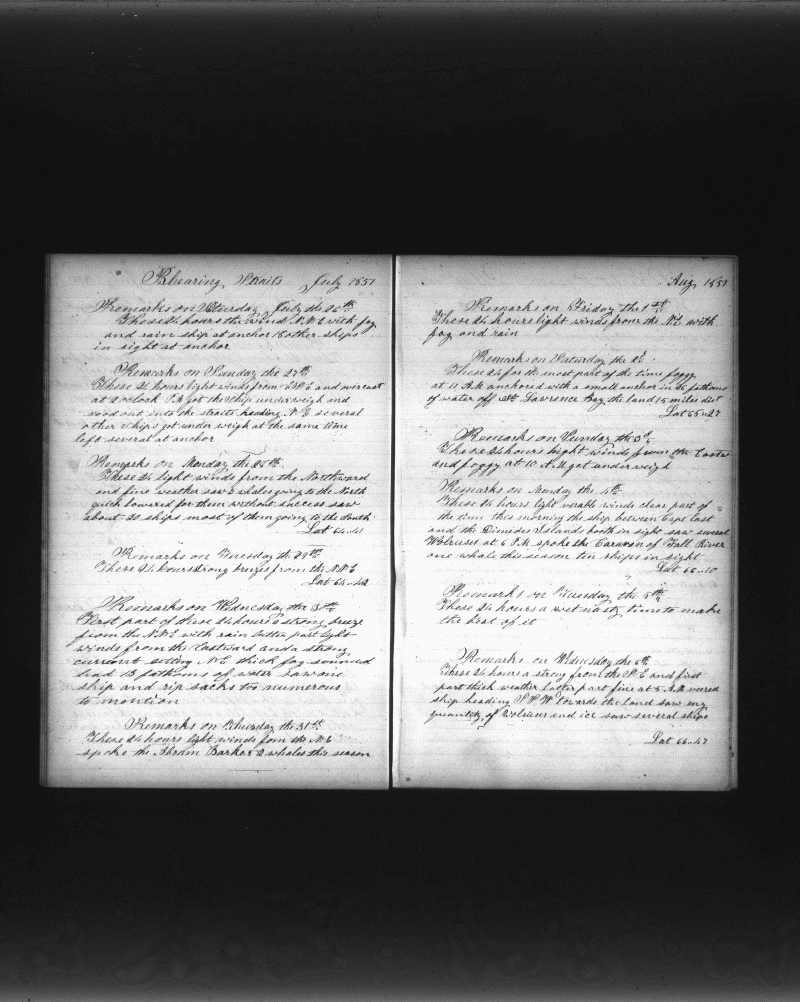 Bhearing Straits July 1851
Remarks on Saturday July the 26th
These 24 hours the wind N.N.E with fog
and rain ship at anchor 8 other ships
in sight at anchor
Remarks on Sunday the 27th
These 24 hours light winds from and overcast
at 2 oclock P.M got the ship underweigh and
stood out into the straits heading N.E several
other ships got under weigh at the same time
left several at anchor
Remarks on Monday the 28th
These 24 light winds from the Northward
and fine weather saw 2 whales going to the North
quick lowered for them without success saw
about 20 ships most of them going to the South
Lat 64..41
Remarks on Tuesday the 29th
These 24 hours strong breeze from the N.N.E
Lat 64..42
Remarks on Wednesday the 30th
First part of these 24 hours a strong breeze
from the N.N.E with rain latter part light
winds from the Eastward and a strong
current setting N.E thick fog sounded
had 18 fathoums of water saw one
ship and rip sacks too numerous
to mention
Remarks on Thursday the 31st
These 24 hours light winds from the N.E
spoke the Abram Barker 2 whales this season
Aug 1851
Remarks on Friday the 1st
These 24 hours light winds from the N.E with
fog and rain
Remarks on Saturday the 2d
These 24 for the most part of the time foggy
at 11 A.M anchored with a small anchor in 26 fathoms
of water off St Lawrence Bay the land 15 miles dist
Lat 65..27
Remarks on Sunday the 3d
These 24 hours light winds from the Eastw
and foggy at 10 A.M got under weigh
Remarks on Monday the 4th
These 24 hours light verable winds clear part of
the time this morning the ship between Cape East
and the Dimides Islands booth in sight saw several
Wolruses at 6 P.M spoke the Caravan of Fall River
one whale this season ten ships in sight
Lat 66..10
Remarks on Tuesday the 5th
These 24 hours a wet nasty time to make
the best of it
Remarks on Wednesday the 6th
These 24 hours a strong from the S.E and first
part thick weather latter part fine at 5 A.M veered
ship heading towards the land saw any
quantity of Wolruses and ice saw several ships
Lat 66..47